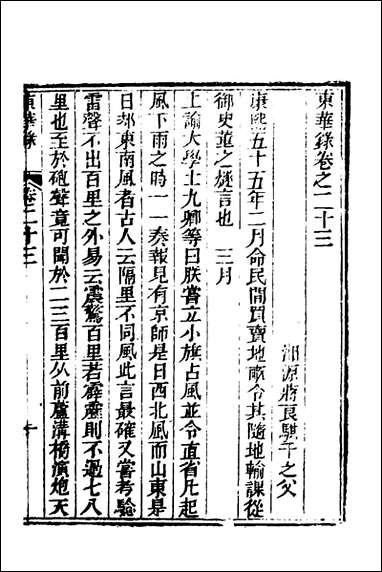 東華錄卷之二十三
湘源蔣良騏千之父
康熙五十五年二月命民間買賣地畝令其隨地輸課從
御史董之燧言也　三月
上諭大學士九卿等曰朕嘗立小旗占風並令直省凡起
風下雨之時一一奏報見有京師是日西北風而山東是
日却東南風者古人云隔里不同風此言最確又嘗考驗
雷聲不出百里之外易云震驚百里若霹靂則不過七八
里也至於砲聲竟可聞於二三百里从前蘆溝橋演炮天
東華錄
卷二十三